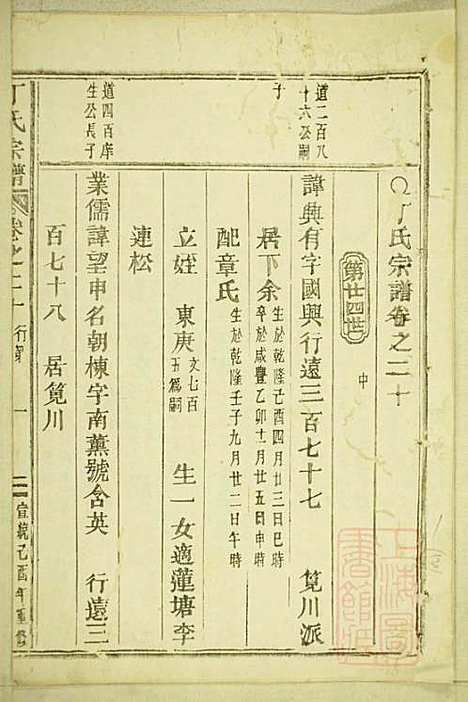 丁氏宗譜卷之二十
中
第廿四世
道二百八十六公嗣子
諱興有字國興行遠三百七十七 筧川派
居下余 生於乾隆己酉四月廿三日巳時 卒於咸豐乙卯十二月廿五日申時
配章氏 生於乾隆壬子九月廿二日午時
立姪東庚 文七百五爲嗣 生一女適蓮塘李
連松
道四百庠生公長子
業儒諱望申名朝棟字南薰號含英 行遠三
百七十八 居筧川
丁氏宗譜 卷之二十 行第 一 宣統己酉年重修
上海圖書館藏